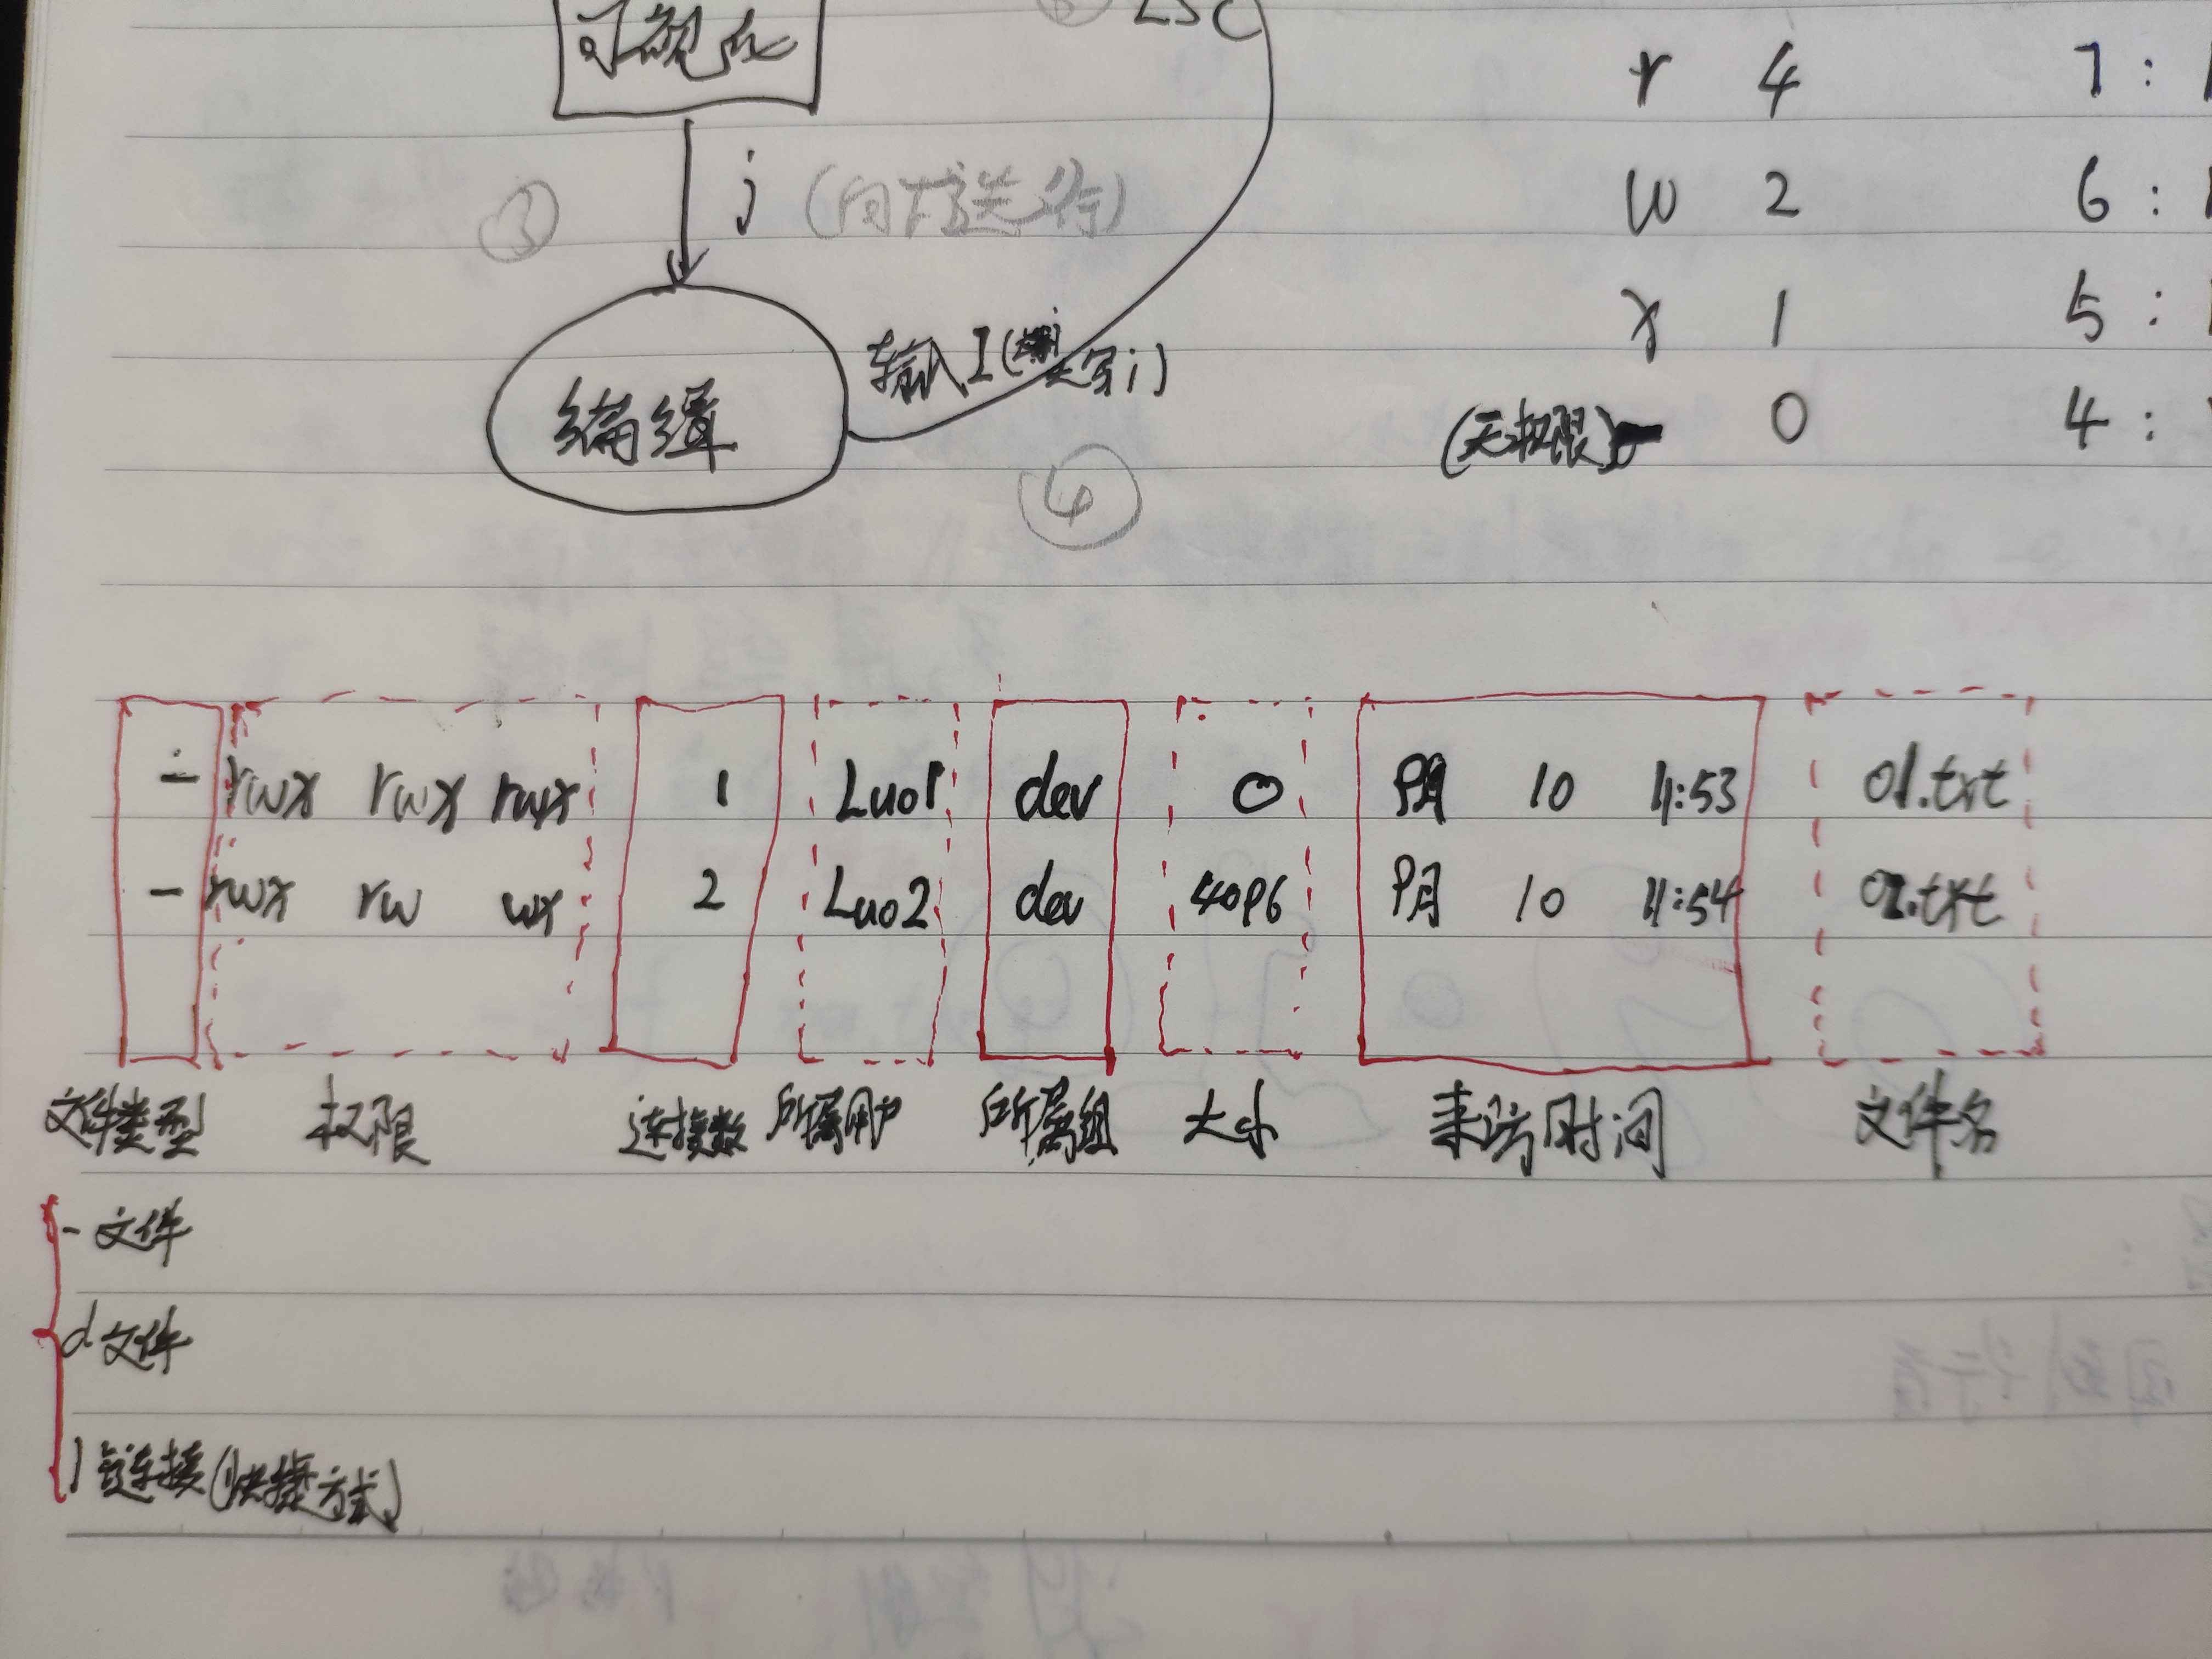 可视化
ESC
③ j (向下选行)
编缉
输入I(大写i)
④
r 4 7:
w 2 6:
x 1 5:
(无权限)- 0 4:
- rwx rwx rwx 1 Luo1 dev 0 9月 10 11:53 01.txt
- rwx rw wx 2 Luo2 dev 4096 9月 10 11:54 02.txt
文件类型 权限 连接数 所属用户 所属组 大小 来访时间 文件名
- 文件
d 文件
l 链连接(快捷方式)